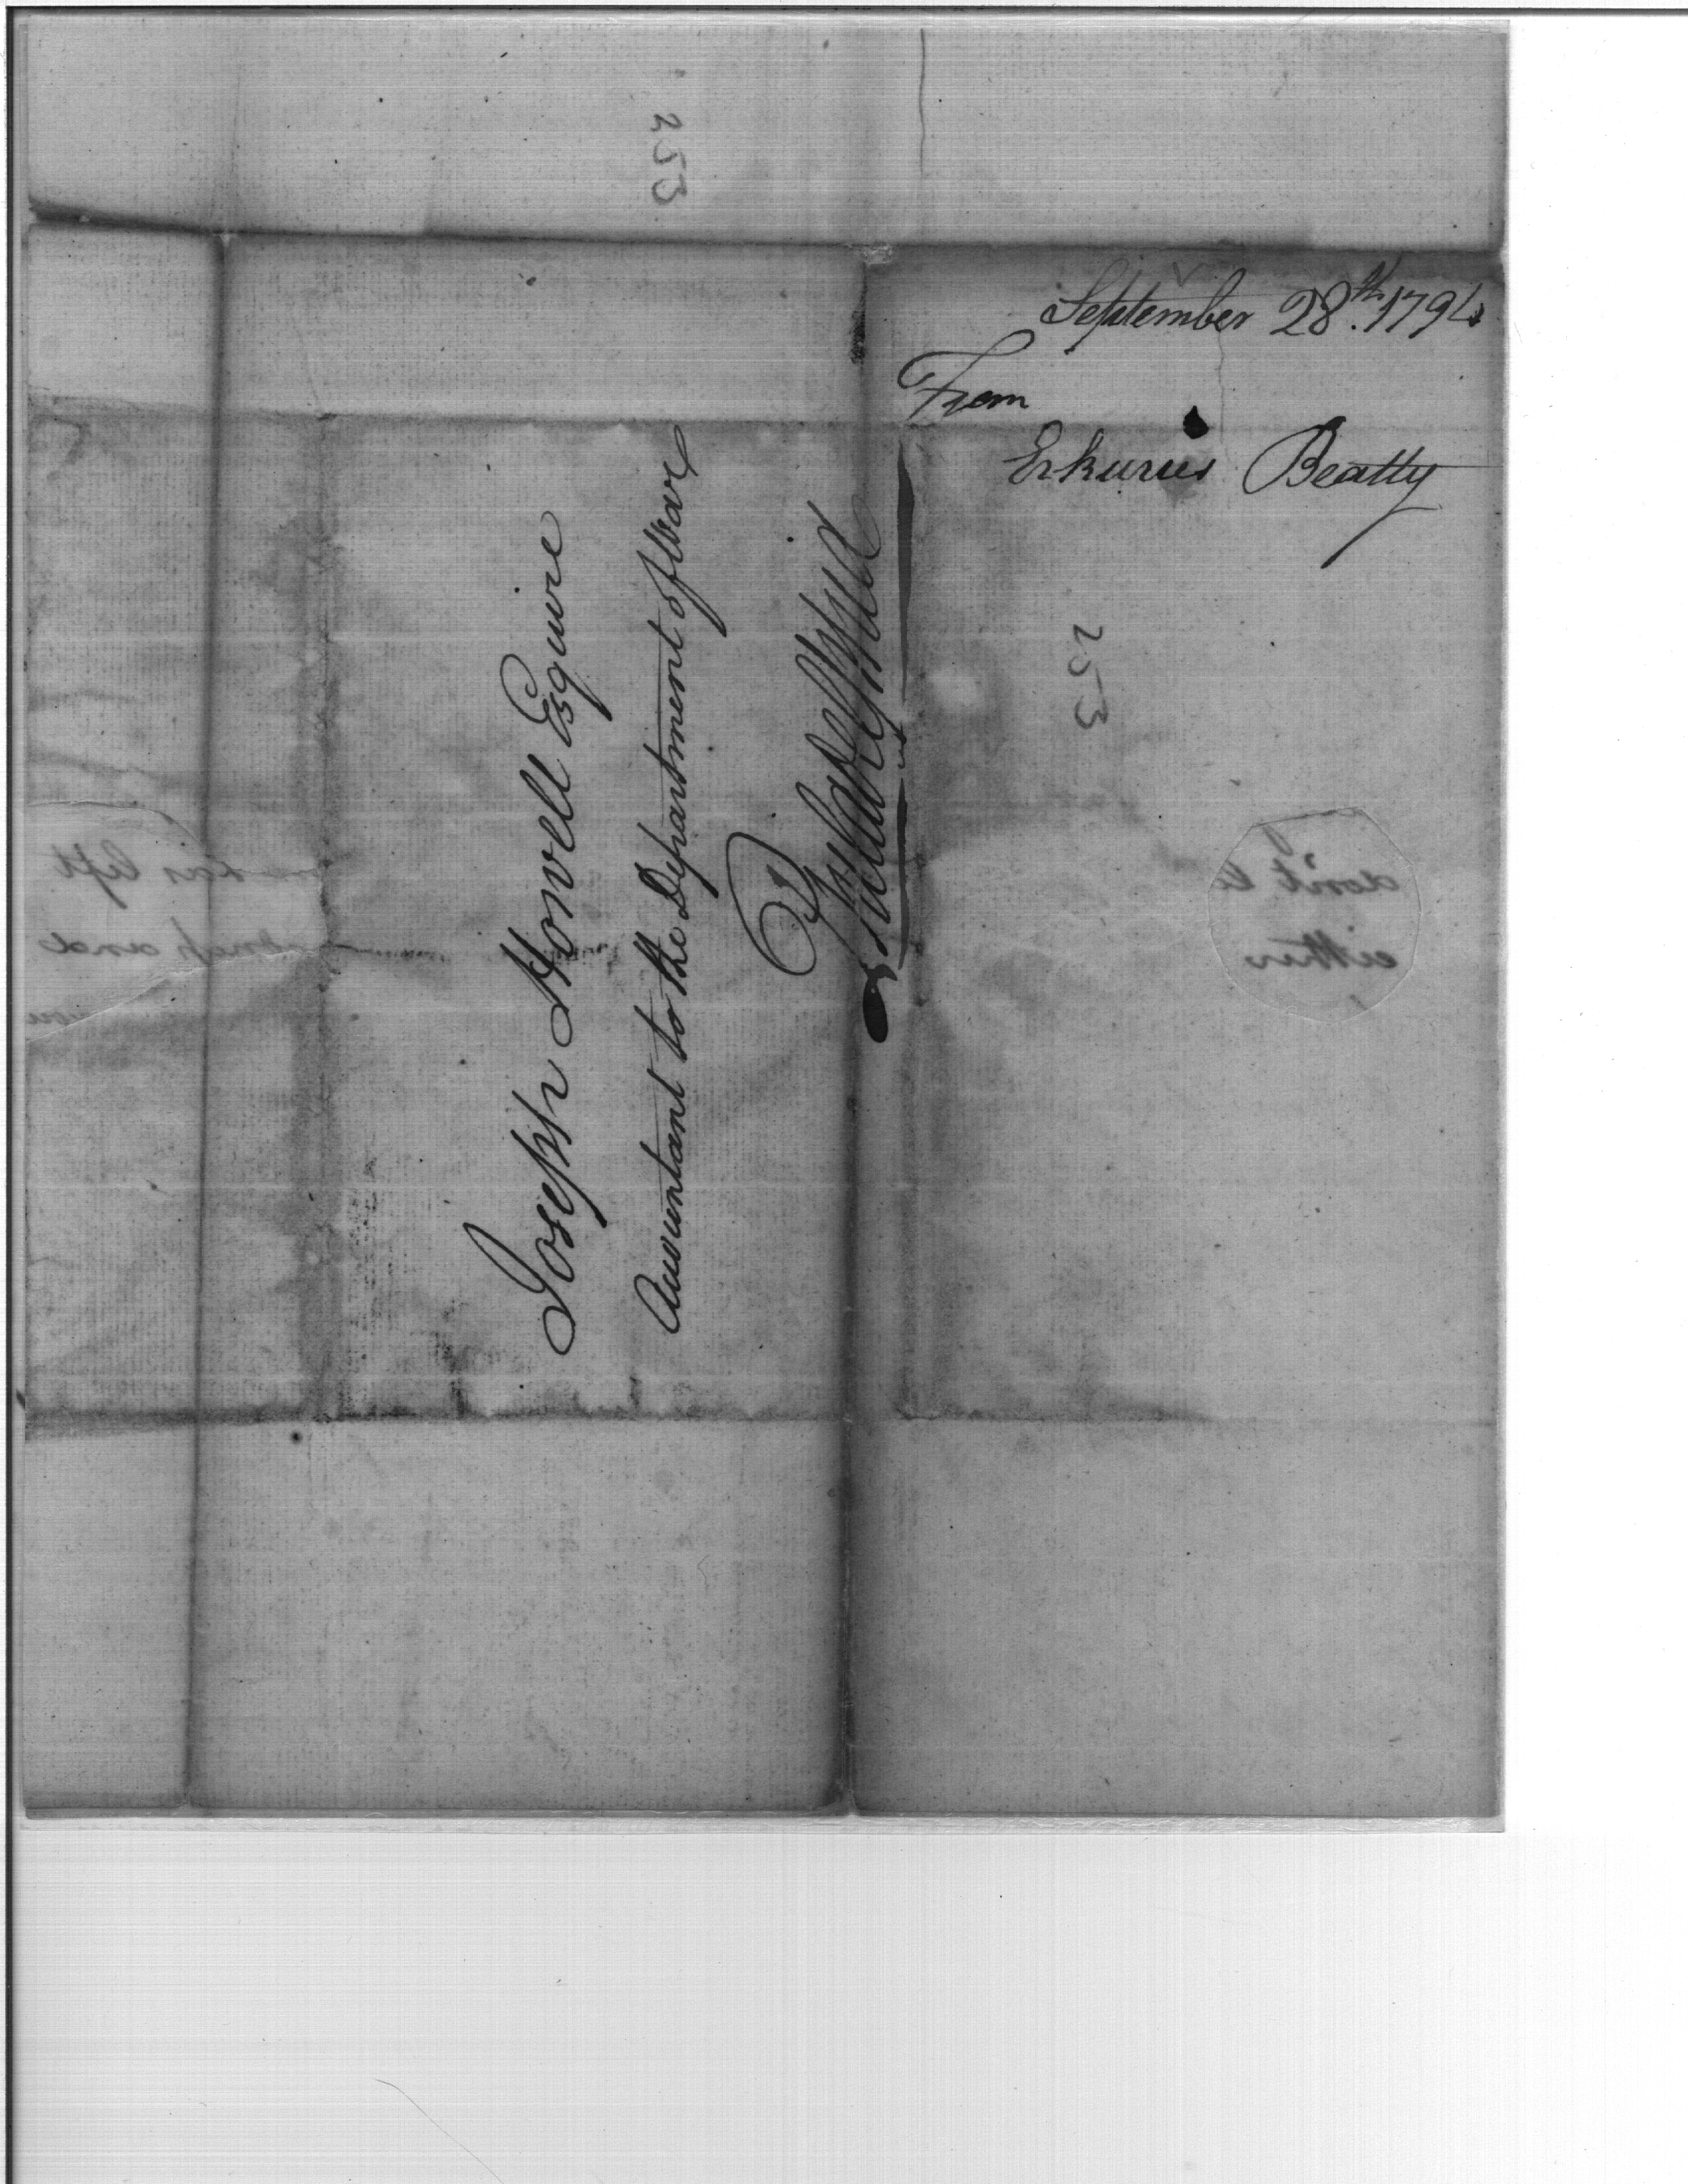 253
September 28th. 1794
From
Erkuries Beatty
253
Joseph Howell Esquire
Accountant to the Department of War
Philadelphia
his left
and
don't
either